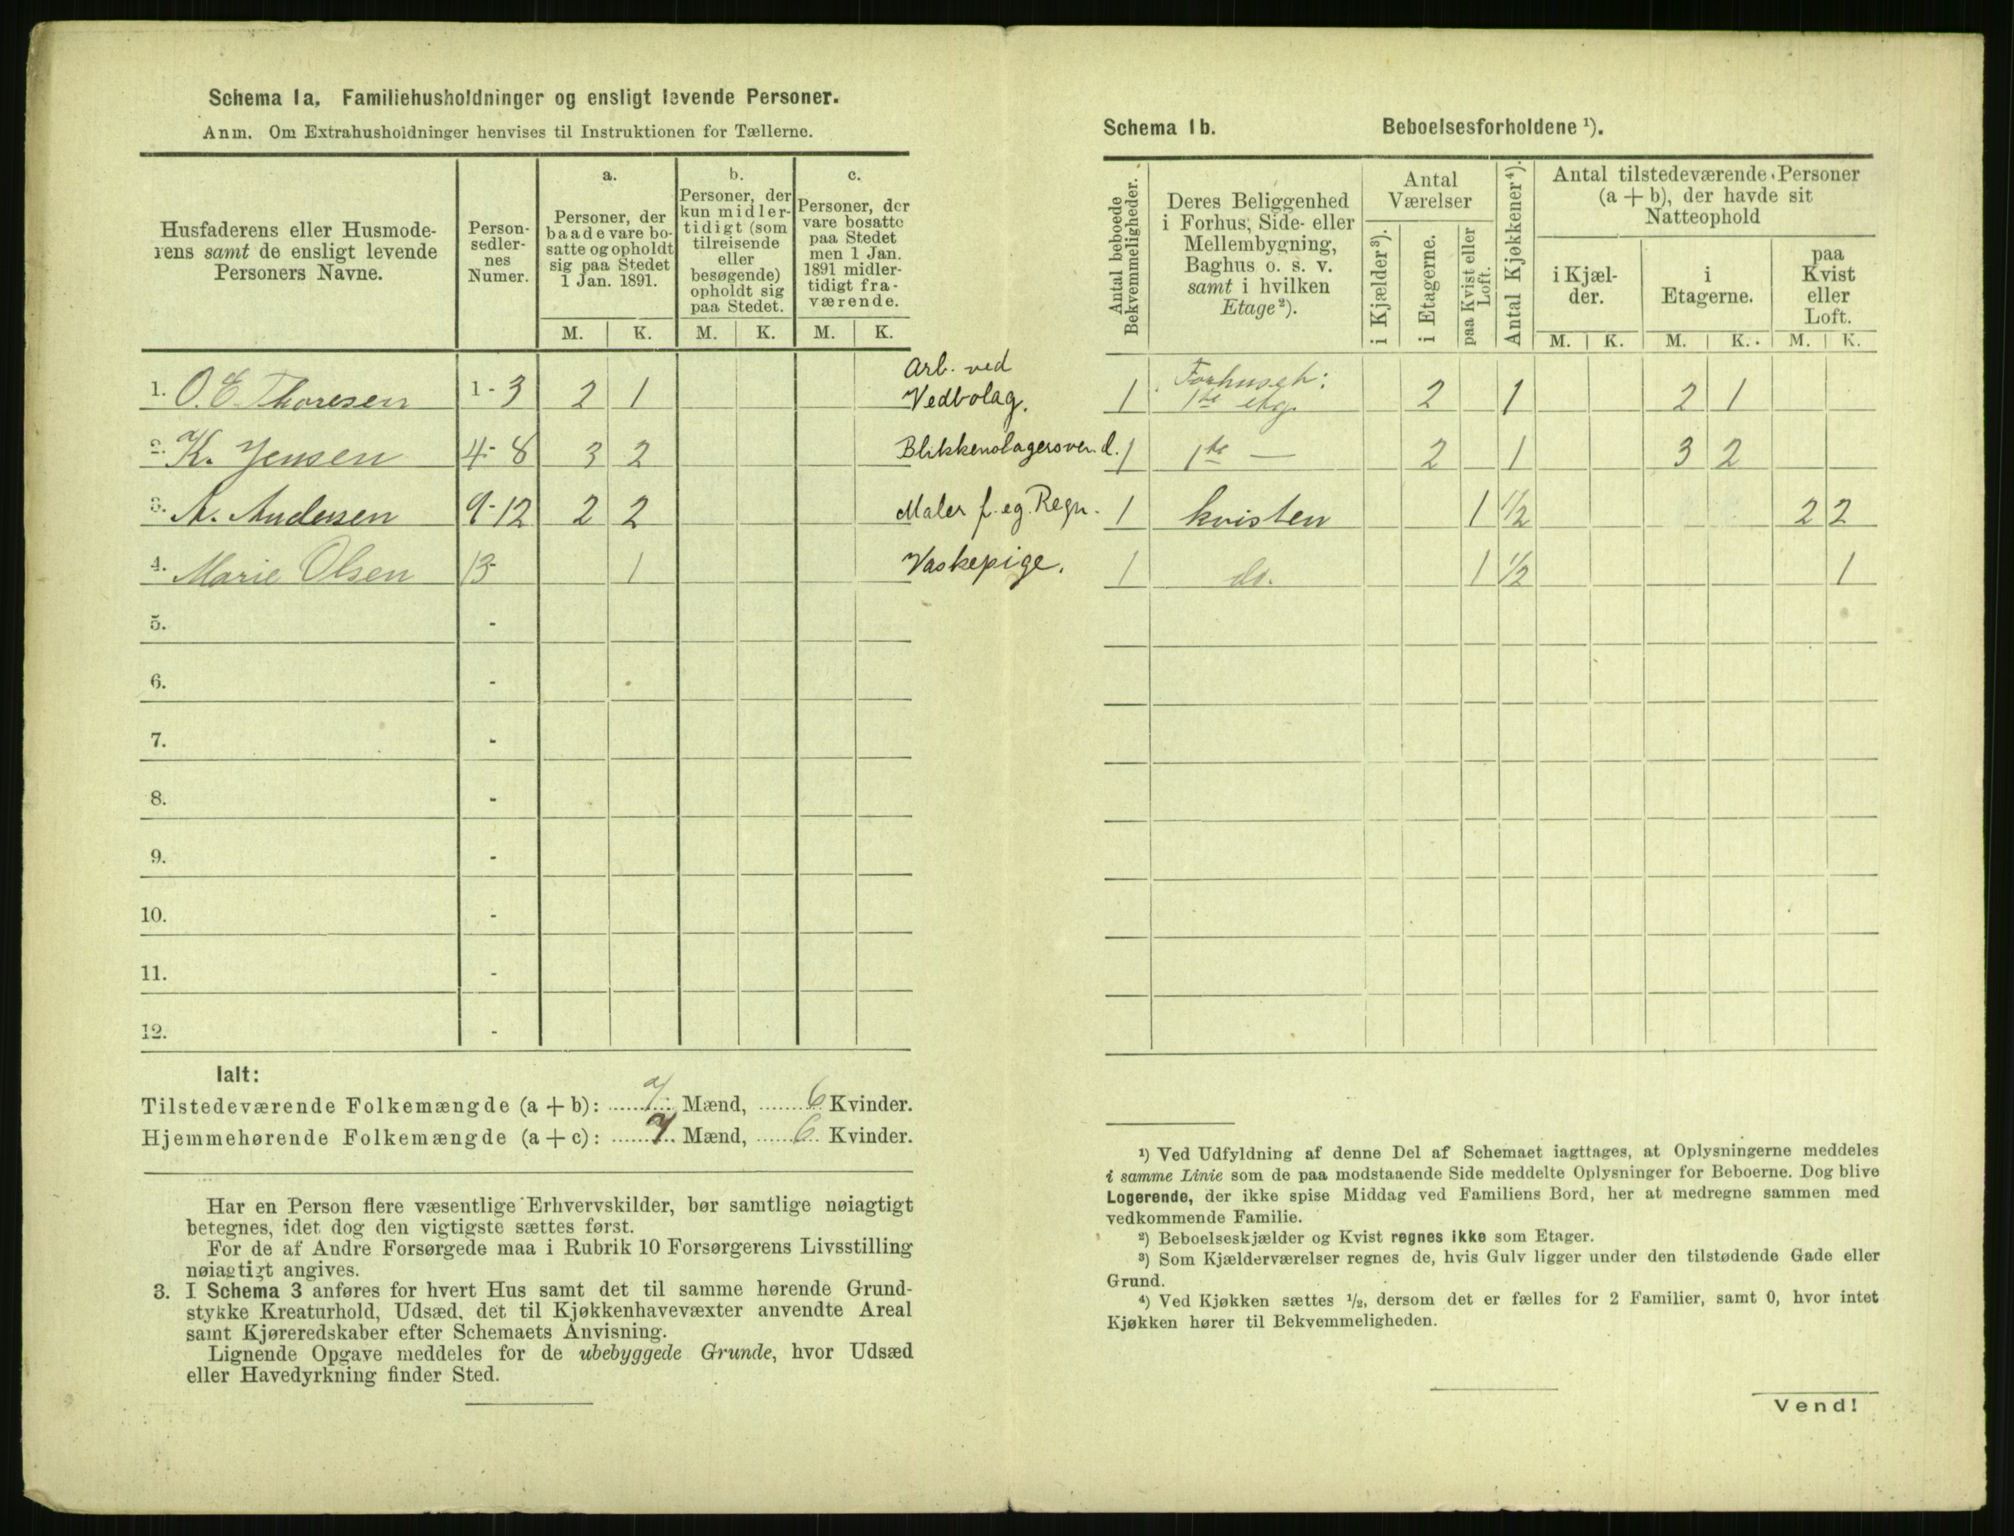 Schema 1a. Familiehusholdninger og ensligt levende Personer.
Anm. Om Extrahusholdninger henvises til Instruktionen for Tællerne.
Husfaderens eller Husmoderens samt de ensligt levende Personers Navne.
Personsedlernes Numer.
a.
Personer, der baade vare bosatte og opholdt sig paa Stedet 1 Jan. 1891.
b.
Personer, der kun midlertidigt (som tilreisende eller besøgende) opholdt sig paa Stedet.
c.
Personer, der vare bosatte paa Stedet men 1 Jan. 1891 midlertidigt fraværende.
M. K. M. K. M. K.
1. O. E. Thoresen 1-3 2 1 Arb. ved Vedbolag.
2. K. Jensen 4-8 3 2 Blikkenslagersvend.
3. A. Andersen 9-12 2 2 Maler f. eg. Regn.
4. Marie Olsen 13- 1 Vaskepige.
5. -
6. -
7. -
8. -
9. -
10. -
11. -
12. -
Ialt:
Tilstedeværende Folkemængde (a + b): 7 Mænd, 6 Kvinder.
Hjemmehørende Folkemængde (a + c): 7 Mænd, 6 Kvinder.
Har en Person flere væsentlige Erhvervskilder, bør samtlige nøiagtigt
betegnes, idet dog den vigtigste sættes først.
For de af Andre Forsørgede maa i Rubrik 10 Forsørgerens Livsstilling
nøiagtigt angives.
3. I Schema 3 anføres for hvert Hus samt det til samme hørende Grund-
stykke Kreaturhold, Udsæd, det til Kjøkkenhavevæxter anvendte Areal
samt Kjøreredskaber efter Schemaets Anvisning.
Lignende Opgave meddeles for de ubebyggede Grunde, hvor Udsæd
eller Havedyrkning finder Sted.
Schema 1b. Beboelsesforholdene ¹).
Antal beboede Bekvemmeligheder.
Deres Beliggenhed i Forhus, Side- eller Mellembygning, Baghus o. s. v. samt i hvilken Etage²).
Antal Værelser
i Kjælder³).
i Etagerne.
paa Kvist eller Loft.
Antal Kjøkkener⁴).
Antal tilstedeværende Personer (a + b), der havde sit Natteophold
i Kjælder.
i Etagerne.
paa Kvist eller Loft.
M. K. M. K. M. K.
1 Forhuset: 1ste etg. 2 1 2 1
1 1ste — 2 1 3 2
1 kvisten 1 ½ 2 2
1 do. 1 ½ 1
¹) Ved Udfyldning af denne Del af Schemaet iagttages, at Oplysningerne meddeles
i samme Linie som de paa modstaaende Side meddelte Oplysninger for Beboerne. Dog blive
Logerende, der ikke spise Middag ved Familiens Bord, her at medregne sammen med
vedkommende Familie.
²) Beboelseskjælder og Kvist regnes ikke som Etager.
³) Som Kjælderværelser regnes de, hvis Gulv ligger under den tilstødende Gade eller
Grund.
⁴) Ved Kjøkken sættes ½, dersom det er fælles for 2 Familier, samt 0, hvor intet
Kjøkken hører til Bekvemmeligheden.
Vend!